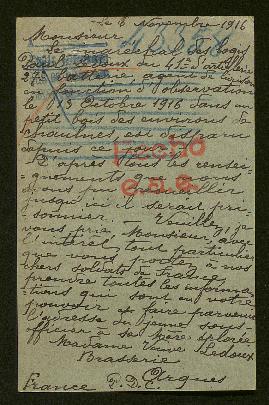 Le 6 Novembre 1916
Monsieur
Le marechal des logis
Ledoux du 41e d'artillerie
27e batterie agent de liaison
en fonction d'observation
le 15 Octobre 1916 dans un
petit bois des environs de
Chaulnes est disparu
depuis ce jour.
D'après tous les rensei-
gnements que nous
avons pu recueillir
jusqu'ici il serait pri-
sonnier. Veuillez je
vous prie, Monsieur, avec
l'intérêt tout particulier
que vous portez à nos
chers soldats de France
prendre toutes les informa-
tions qui sont en votre
pouvoir et faire parvenir
l'adresse du jeune sous-
officier à sa mère éplorée
Madame Veuve Ledoux
Brasserie
Arques
France P. D. C.
Hecho